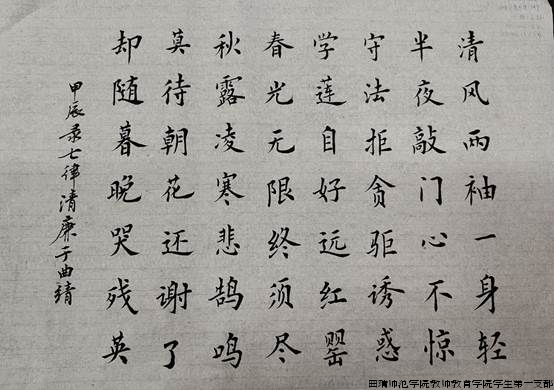 清风两袖一身轻
半夜敲门心不惊
守法拒贪驱诱惑
学莲自好远红罂
春光无限终须尽
秋露凌寒悲鹄鸣
莫待朝花还谢了
却随暮晚哭残英
甲辰录七律清廉于曲靖
曲靖师范学院教师教育学院学生第一支部